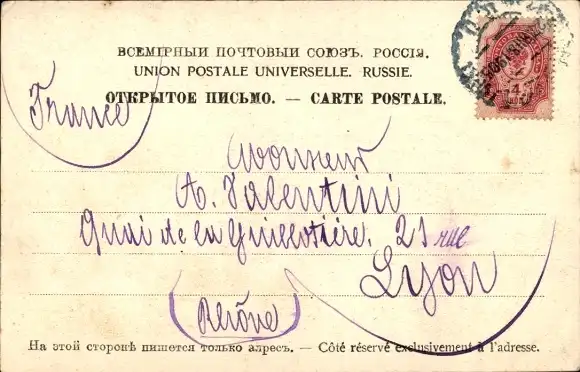 ВСЕМІРНЫЙ ПОЧТОВЫЙ СОЮЗЪ. РОССІЯ.
UNION POSTALE UNIVERSELLE. RUSSIE.
ОТКРЫТОЕ ПИСЬМО. — CARTE POSTALE.
France
Monsieur
A. Valentini
Quai de la Guillotière, 21 rue
Lyon
Rhône
На этой сторонѣ пишется только адресъ. — Côté réservé exclusivement à l'adresse.